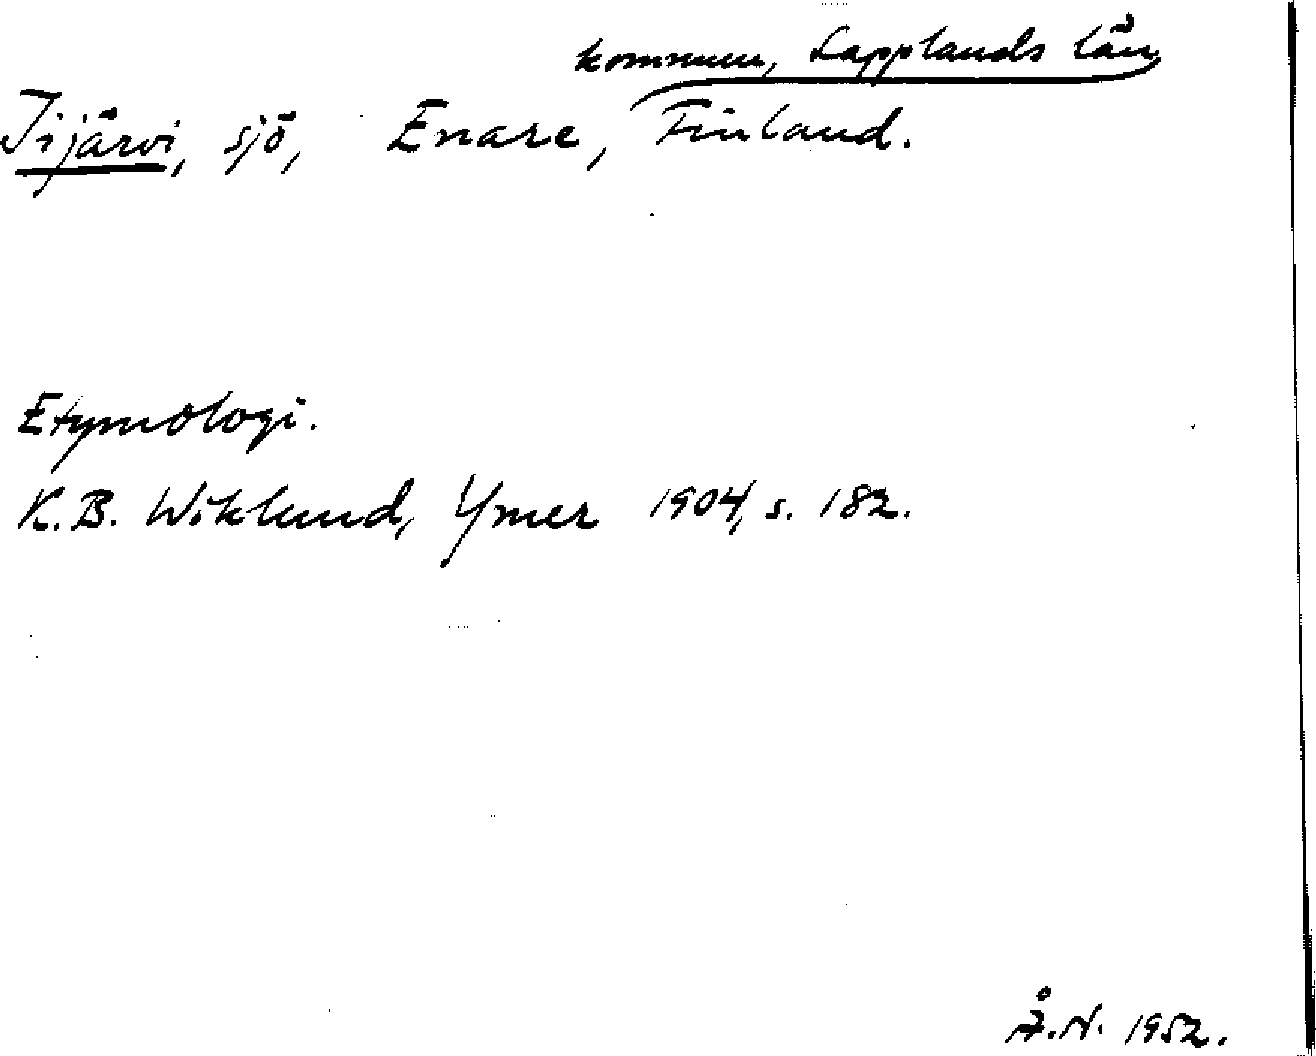 kommun, Lapplands län,
Iijärvi, sjö, Enare, Finland.
Etymologi.
K.B. Wiklund, Ymer 1904, s. 182.
Å.N. 1952.